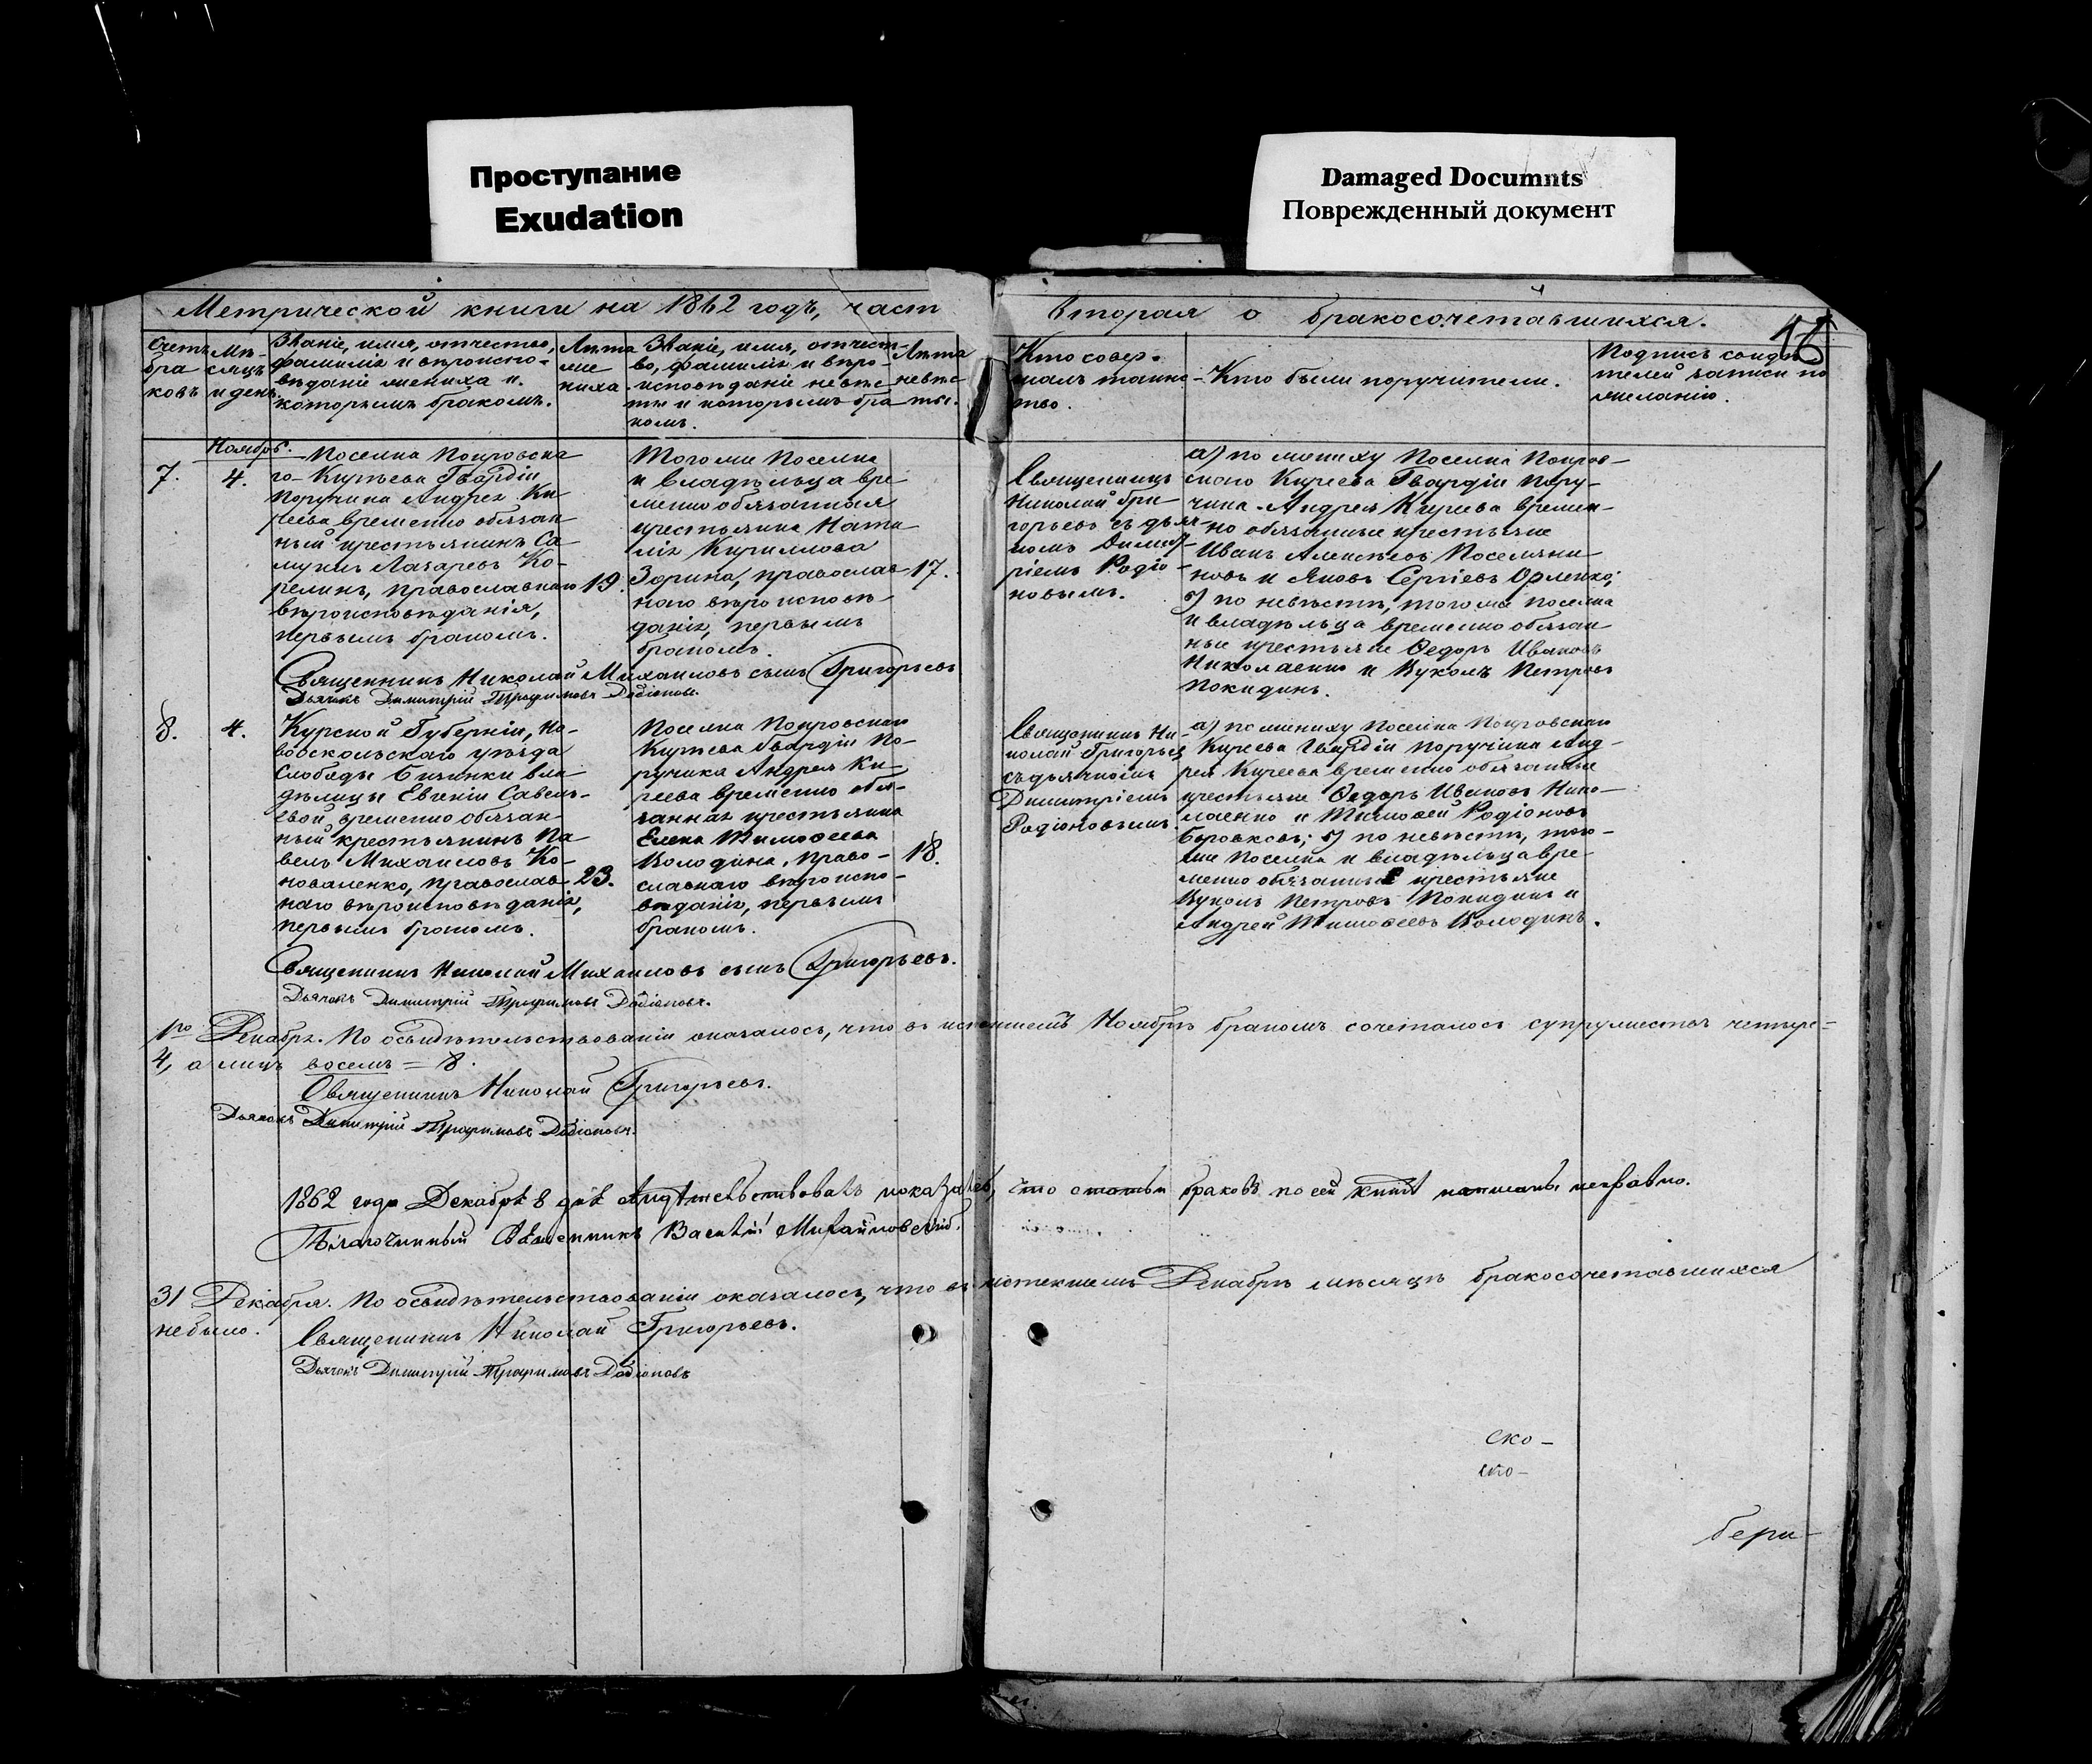 Проступание
Exudation
Damaged Documnts
Поврежденный документ
Метрической книги на 1862 годъ, част
вторая о бракосочетавшихся.
Счетъ
бра
ковъ
Мѣ-
сяцъ
и день.
Званіе, имя, отчество,
фамилія и вѣроиспо-
вѣданіе жениха и
которымъ бракомъ.
Лѣта
же
ниха
Званіе, имя, отчест-
во, фамилія и вѣро-
исповѣданіе невѣс-
ты и которымъ бра
комъ.
Лѣта
невѣс
ты.
Кто совер-
шалъ таинс-
тво.
Кто были поручители.
Подпись свидѣ
телей записи по
желанію.
Ноябрь.
7.
4.
Поселка Покровска
го-Кирѣева Гвардіи
Поручика Андрея Ки
рѣева временно обязан
ный крестьянинъ Са
муилъ Лазаревъ Ко-
релинъ, православнаго
вѣроисповѣданія,
первымъ бракомъ.
19.
Того же поселка
и владѣльца вре
менно обязанная
крестьянка Ната
лія Кириллова
Зорина, православ
наго вѣроисповѣ-
данія, первымъ
бракомъ.
17.
Священникъ
Николай Гри-
горьевъ съ дьяч-
комъ Димит-
ріемъ Родіо-
новымъ.
а) по жениху Поселка Покров-
скаго Кирѣева Гвардіи Пору-
чика Андрея Кирѣева времен-
но обязанные крестьяне
Иванъ Алексѣевъ Поселяни-
новъ и Яковъ Сергіевъ Орленко;
б) по невѣстѣ, того же поселка
и владѣльца временно обязан
ные крестьяне Ѳедоръ Ивановъ
Николаенко и Вуколъ Петровъ
Покидинъ.
Священникъ Николай Михаиловъ сынъ Григорьевъ
Дьячокъ Димитрій Трофимовъ Родіоновъ.
8.
4.
Курской Губерніи, Но-
вооскольскаго уѣзда
Слободы Бизинки вла
дѣлицы Евгеніи Савель-
евой временно обязан-
ный крестьянинъ Па
велъ Михаиловъ Ко-
новаленко, православ-
наго вѣроисповѣданія,
первымъ бракомъ.
23.
Поселка Покровскаго
Кирѣева Гвардіи По-
ручика Андрея Ки-
рѣева временно обя-
занная крестьянка
Елена Тимоѳеева
Колодина, право-
славнаго вѣроиспо-
вѣданія, первымъ
бракомъ.
18.
Священникъ Ни
колай Григорьевъ
съ дьячкомъ
Димитріемъ
Родіоновымъ.
а) по жениху поселка Покровскаго
Кирѣева Гвардіи поручика Анд-
рея Кирѣева временно обязанные
крестьяне Ѳедоръ Ивановъ Нико-
лаенко и Тимоѳей Родіоновъ
Боровковъ; б) по невѣстѣ, того-
же поселка и владѣльца вре-
менно обязанные крестьяне
Вуколъ Петровъ Покидинъ и
Андрей Тимоѳеевъ Колодинъ.
Священникъ Николай Михаиловъ сынъ Григорьевъ.
Дьячокъ Димитрій Трофимовъ Родіоновъ.
1го Декабря. По освидѣтельствованіи оказалось, что въ истекшемъ Ноябрѣ бракомъ сочеталось супружествъ четыре=
4, а лицъ восемь = 8.
Священникъ Николай Григорьевъ.
Дьячокъ Димитрій Трофимовъ Родіоновъ.
1862 года Декабря 8 дня свидѣтельствовалъ показалъ, что статьи браковъ по сей книгѣ написаны исправно.
Благочинный Священникъ Василій Михайловскій.
31 Декабря. По освидѣтельствованіи оказалось, что въ истекшемъ Декабрѣ мѣсяцѣ бракосочетавшихся
небыло.
Священникъ Николай Григорьевъ.
Дьячокъ Димитрій Трофимовъ Родіоновъ
ско-
бери-